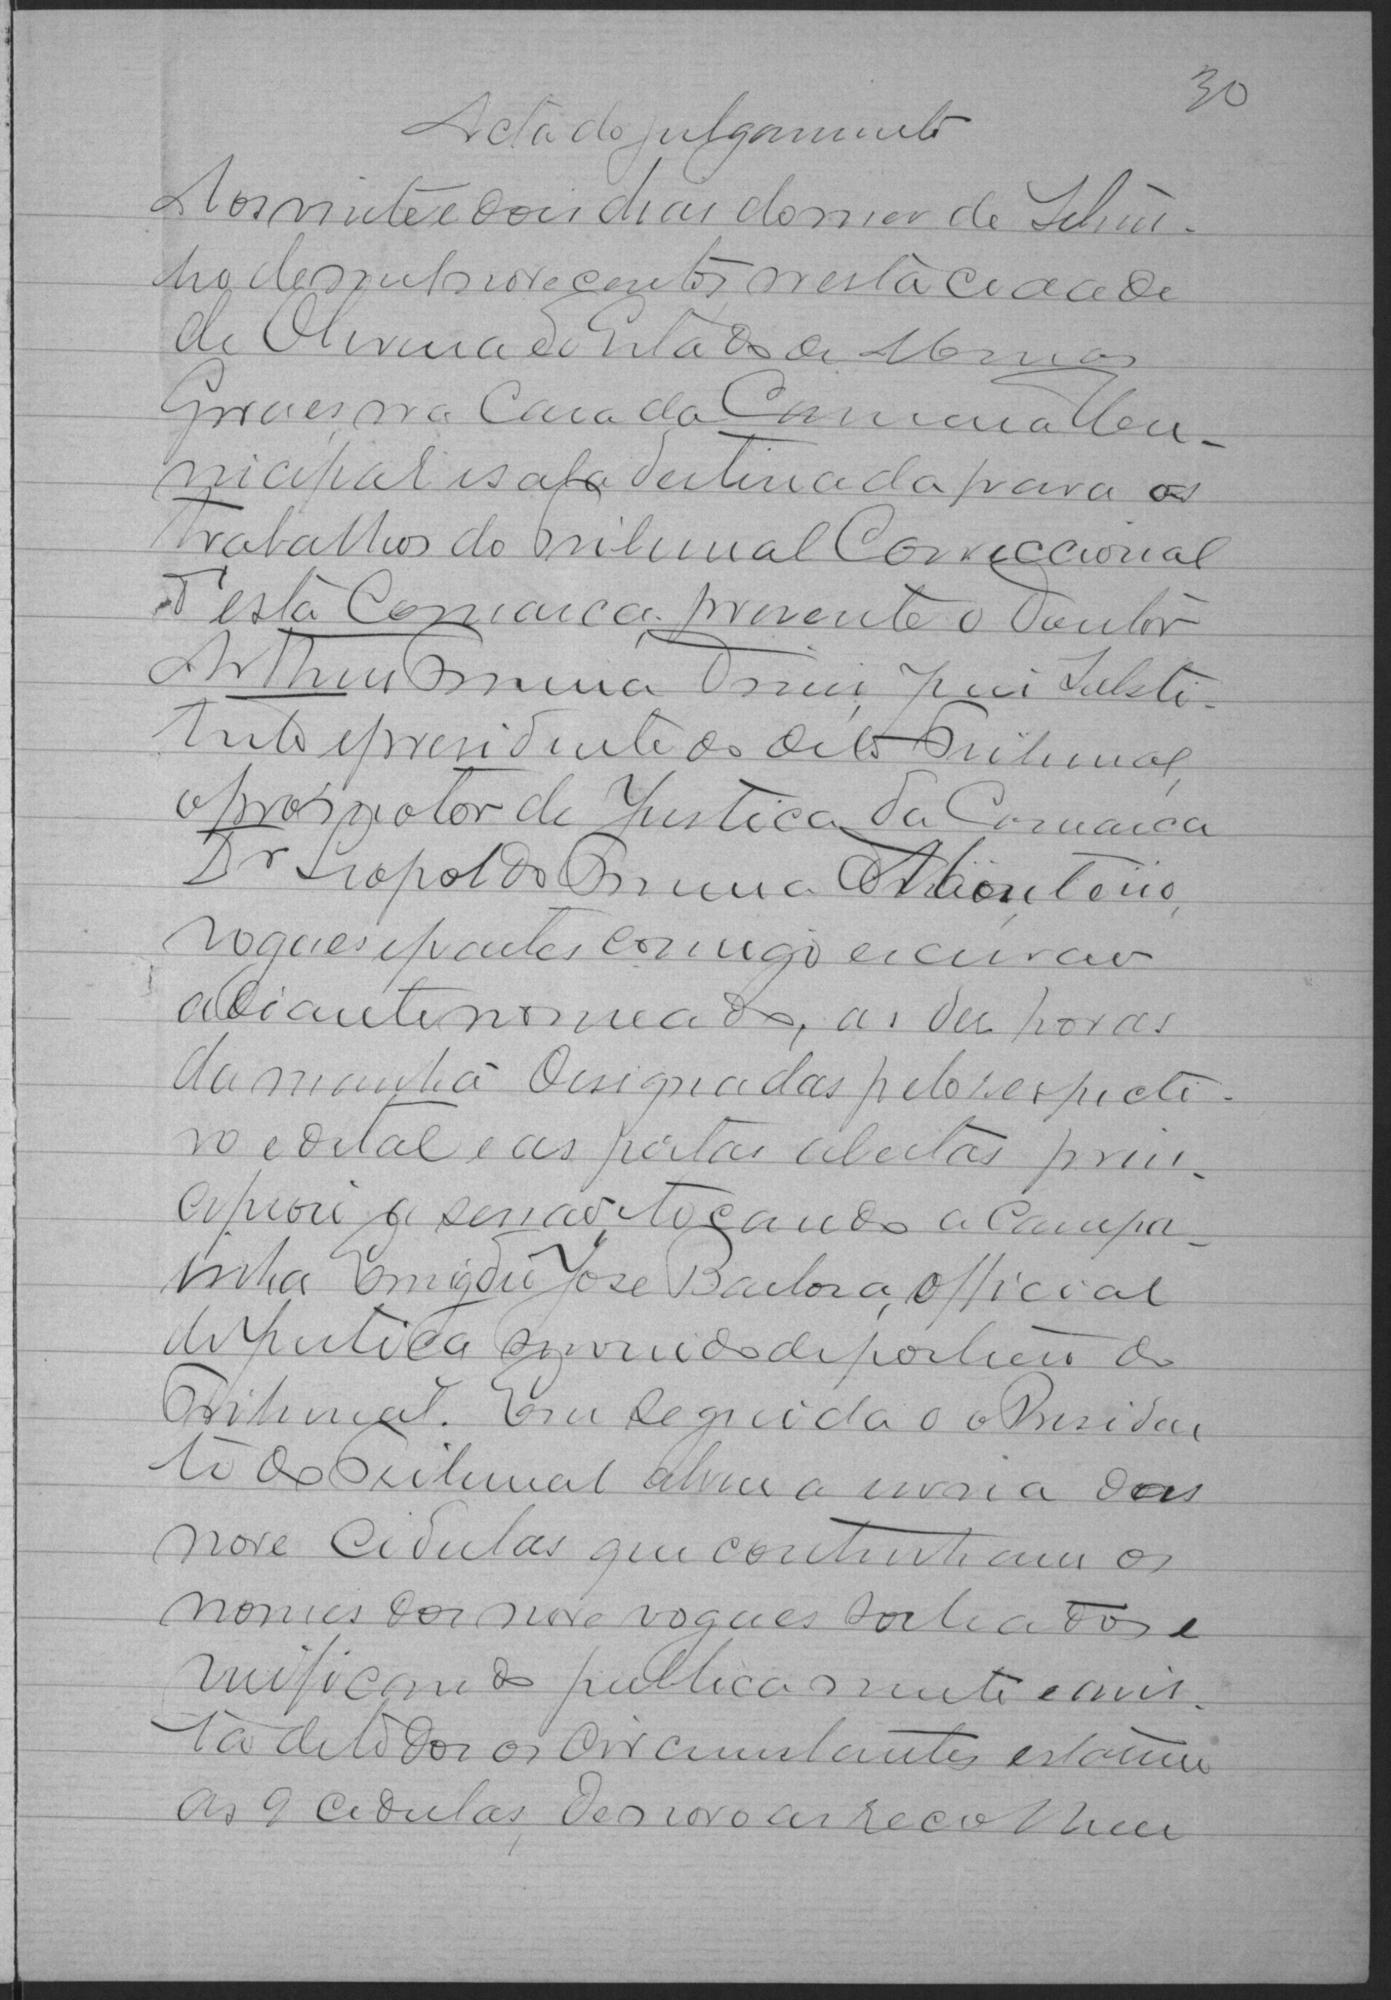 30
Acta do julgamento
Aos vinte e dois dias do mez de Ju
nho de mil novecentos, nesta cidade
de Oliveira do Estado de Minas
Geraes, na Casa da Camara Mu-
nicipal e sala destinada para os
trabalhos do Tribunal Correccional
d'esta Comarca, presente o Doutor
Arthur Diniz, juiz Substi-
tuto e presidente do dito Tribunal,
o promotor de Justiça da Comarca
Dr Leopoldo Monteiro,
vogaes e partes comigo escrivão
adiante nomeado, as dez horas
da manhã designadas pelo respecti-
vo edital e as portas abertas prin-
cipiou a sessão, tocando a campa-
inha Emigdio José Barbosa, official
de justiça servindo de porteiro do
Tribunal. Em seguida o Presiden
te do Tribunal abriu a urna das
nove cedulas que continham os
nomes dos nove vogaes sorteados e
verificando publicamente e a vis-
ta de todos os circumstantes estarem
as 9 cedulas, de novo as recolheu